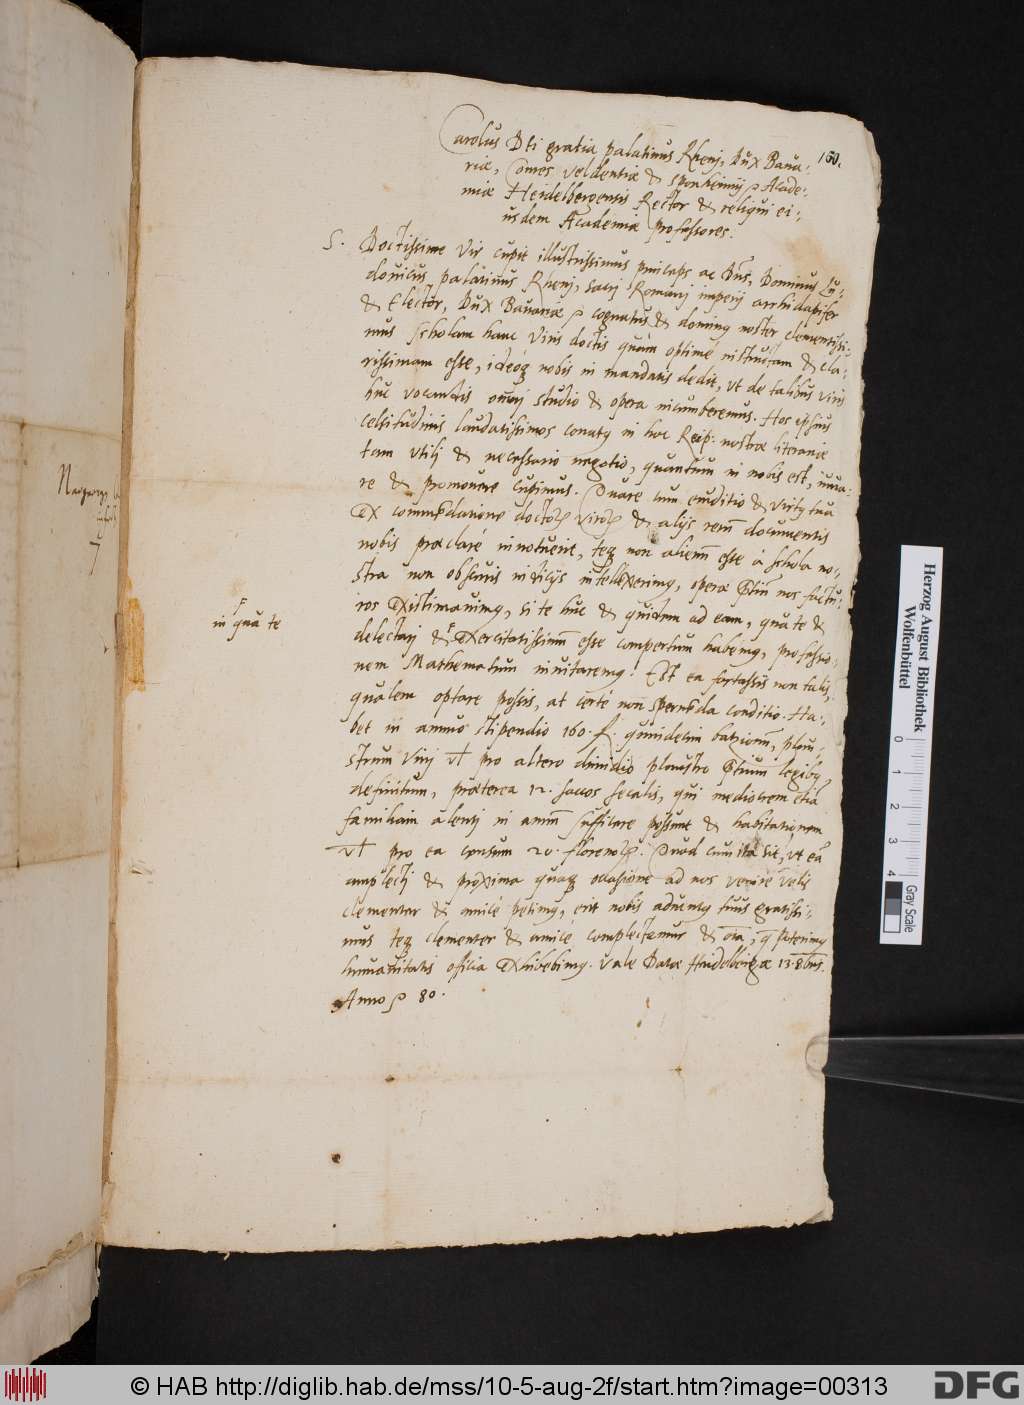 160.
Carolus Dei gratia palatinus Rhenj, Dux Baua-
riæ, Comes veldentiæ & sponheimij Acade-
miæ Heidelbergensis Rector & reliqui ei-
usdem Academiæ professores.
S. Doctissime Vir cupit illustrissimus princeps ac Dns, Dominus Lu-
douicus, palatinus Rhenj, sacrj Romanj imperij archidapifer
& Elector, Dux Bauariæ cognatus & dominus noster clementissi-
mus Scholam hanc Viris doctis quàm optime instructam & cla-
rissimam esse, ideóq nobis in mandatis dedit, vt de talibus viris
huc vocandis omnj studio & opera incumberemus. Hos ipsius
celsitudinis laudatissimos conatus in hoc Reip: nostræ literariæ
tam vtilj & necessario negotio, quantum in nobis est, iuua-
re & promouere cupimus. Quare cum eruditio & virtus tua
Ex commendatione doctor viror & alijs rerum documentis
nobis præclarè innotuerit, teq non alienum esse à schola no-
stra non obscuris indicijs intellexerimus, operæ pretium nos factu-
ros existimauimus, si te hûc & quidem ad eam, qua te &
in qua te
delectarj & exercitatissimum esse compertum habemus, professio-
nem Mathematum inuitaremus. Est ea fortassis non talis,
qualem optare possis, at certè non spernenda conditio. Ha-
bet in annuo stipendio 160. f. quindecim batzionum, plau-
strum Vinj vel pro altero dimidio plaustro pretium legibus
definitum, præterea 12. saccos secalis, qui mediocrem etiam
familiam alentj in annum sufficere possunt & habitationem
vel pro ea censum 20. florenor. Quod cum ita sit, vt eam
amplectj & proxima quaq occasione ad nos venire velis
clementer & amicè petimus, erit nobis aduentus tuus gratissi-
mus teq clementer & amicè complectemur & omnia, quæ poterimus
humanitatis officia exhibebimus. Vale Datæ Haidelbergæ 13. 8bris.
Anno 80.
Herzog August Bibliothek
Wolfenbüttel
0 1 2 3 4
Gray Scale
© HAB http://diglib.hab.de/mss/10-5-aug-2f/start.htm?image=00313
DFG